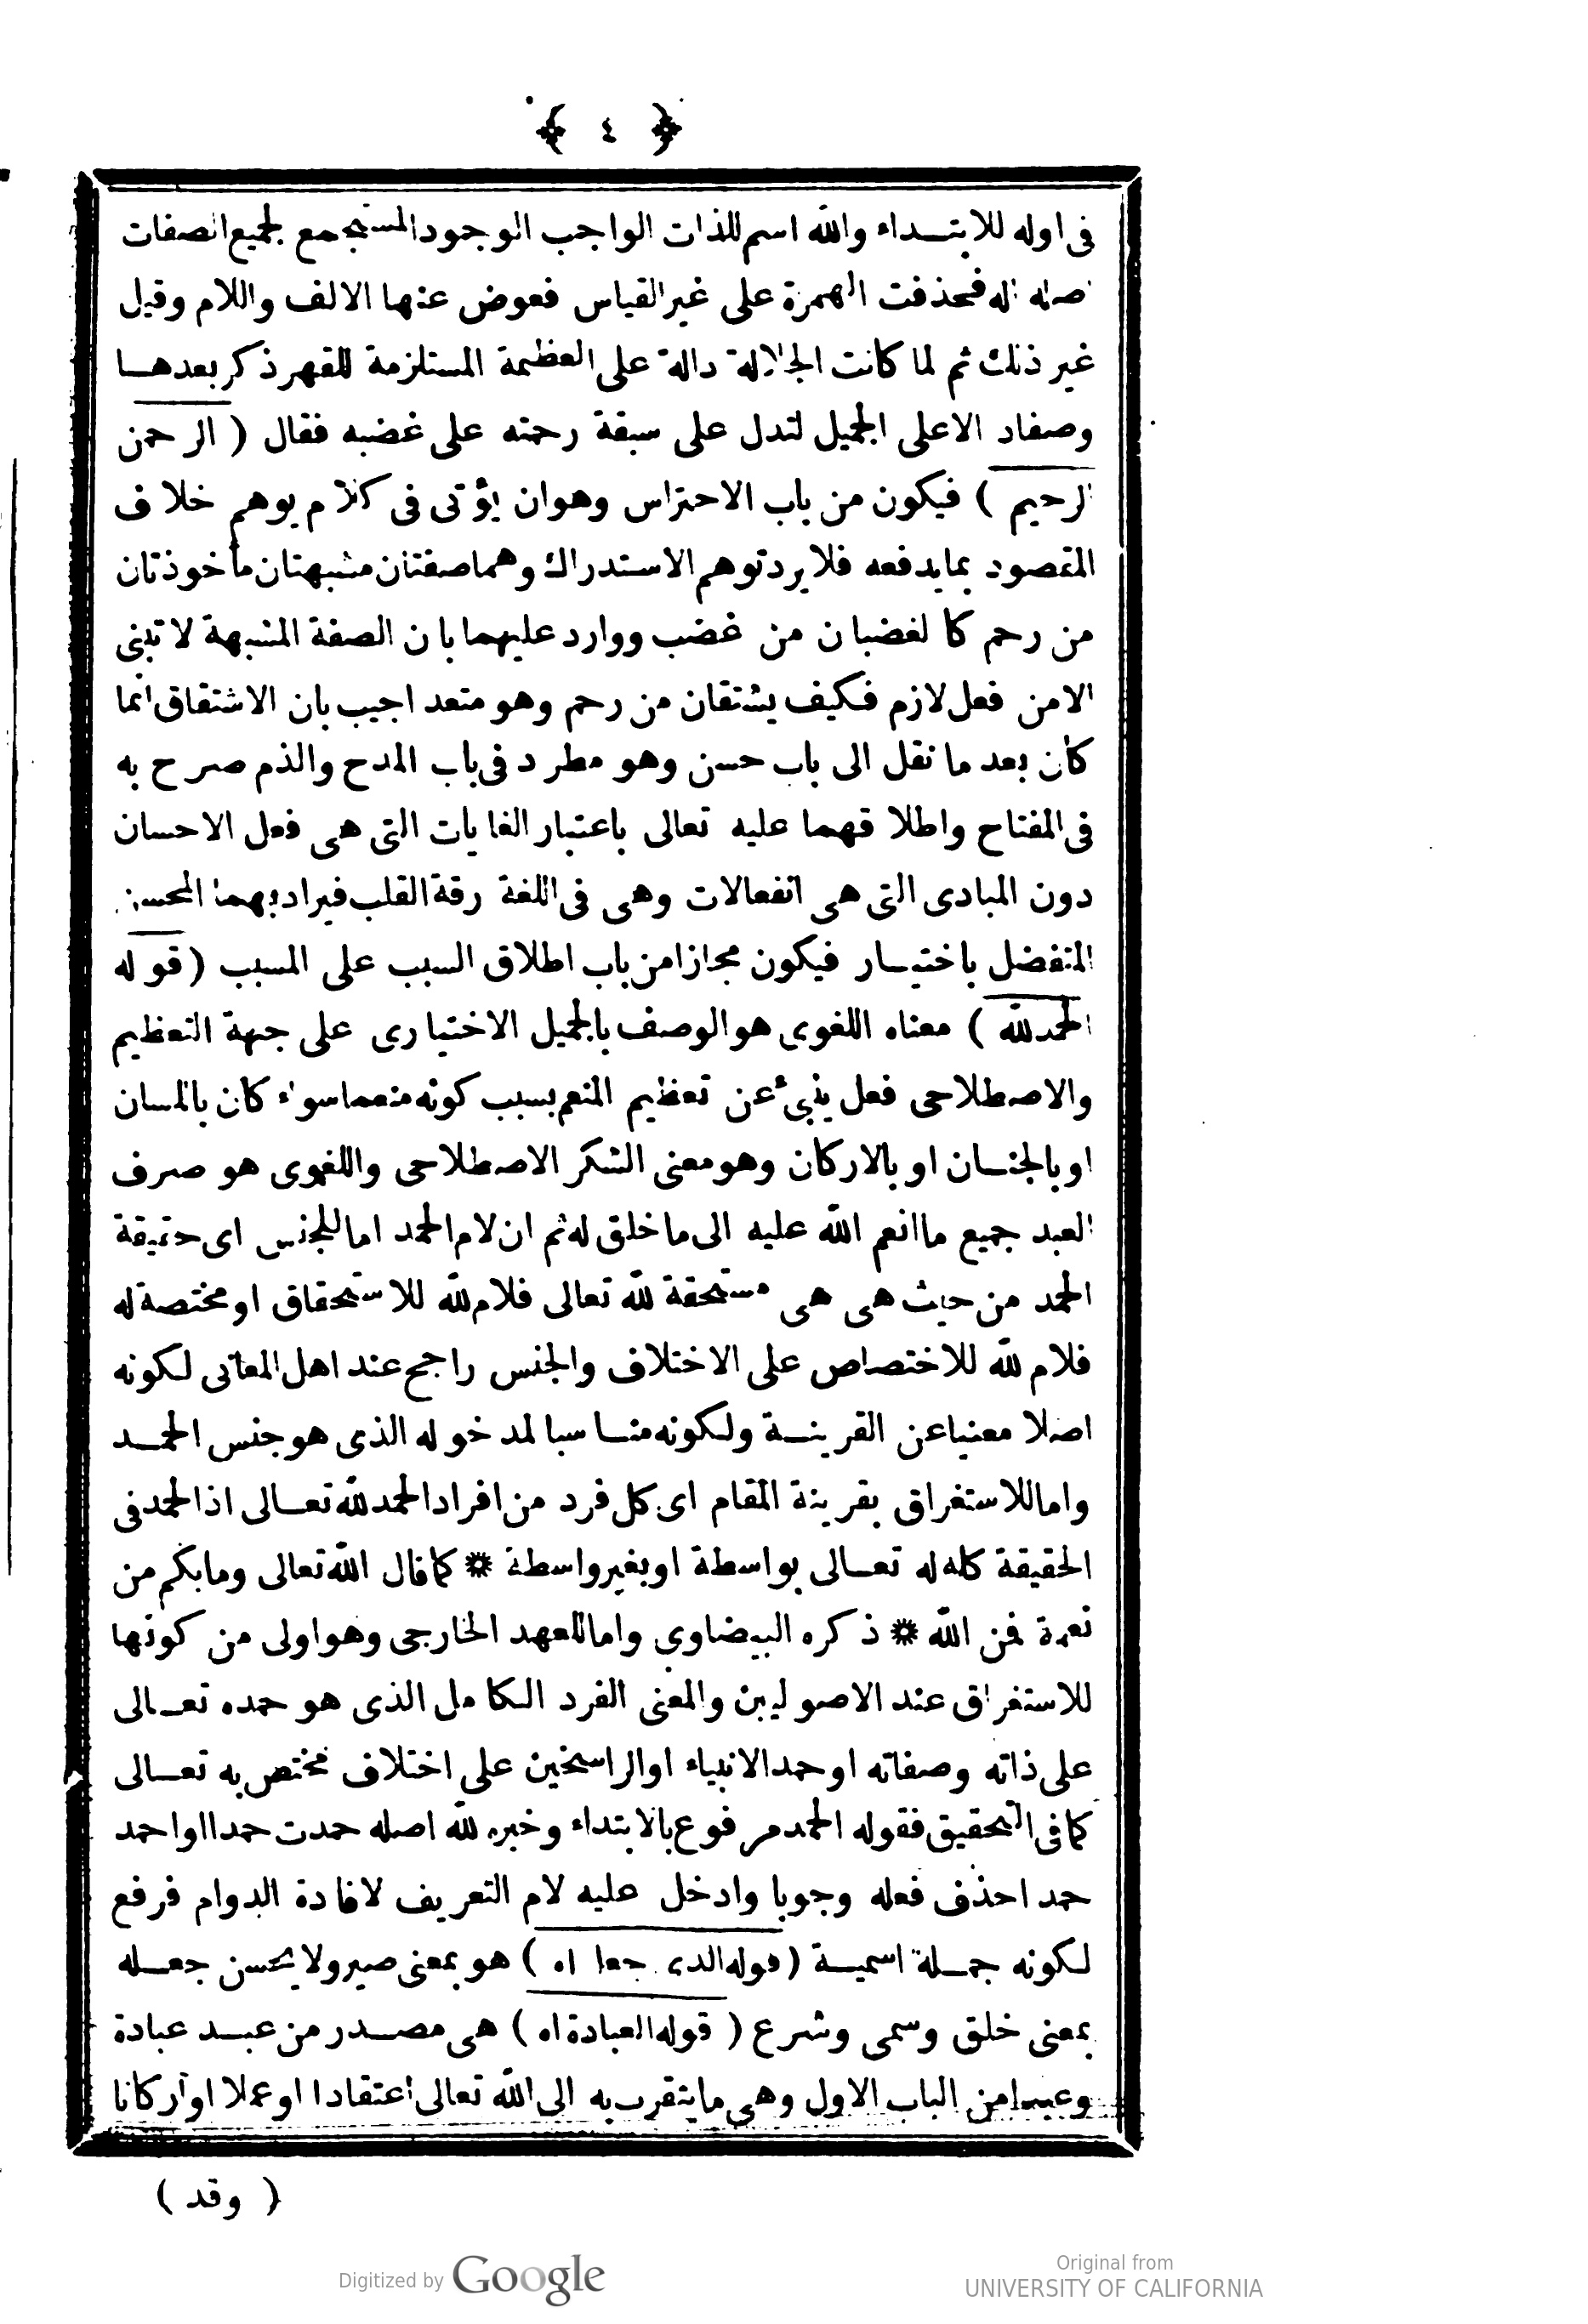 ﴿ ٤ ﴾
فى اوله للابتداء والله اسم للذات الواجب الوجود المستجمع لجميع الصفات
اصله اله فحذفت الهمزة على غير القياس فعوض عنها الالف واللام وقيل
غير ذلك ثم لما كانت الجلالة دالة على العظيمة المستلزمة للقهر ذكر بعدها
وصفاد الاعلى الجميل لتدل على سبقة رحمته على غضبه فقال ( الرحمن
الرحيم ) فيكون من باب الاحتراس وهو ان يؤتى فى كلام يوهم خلاف
المقصود بما يدفعه فلا يرد توهم الاستدراك وهما صفتان مشبهتان مأخوذتان
من رحم كالغضبان من غضب ووارد عليهما بان الصفة المشبهة لا تبنى
الا من فعل لازم فكيف يشتقان من رحم وهو متعد اجيب بان الاشتقاق انما
كان بعد ما نقل الى باب حسن وهو مطرد فى باب المدح والذم صرح به
فى المفتاح واطلاقهما عليه تعالى باعتبار الغايات التى هى فعل الاحسان
دون المبادى التى هى انفعالات وهى فى اللغة رقة القلب فيراد بهما المحسن
المتفضل باختيار فيكون مجازا من باب اطلاق السبب على المسبب ( قوله
الحمد لله ) معناه اللغوى هو الوصف بالجميل الاختيارى على جهة التعظيم
والاصطلاحى فعل ينبئ عن تعظيم المنعم بسبب كونه منعما سواء كان باللسان
او بالجنان او بالاركان وهو معنى الشكر الاصطلاحى واللغوى هو صرف
العبد جميع ما انعم الله عليه الى ما خلق له ثم ان لام الحمد اما للجنس اى حقيقة
الحمد من حيث هى هى مستحقة لله تعالى فلام لله للاستحقاق او مختصة له
فلام لله للاختصاص على الاختلاف والجنس راجح عند اهل المعانى لكونه
اصلا معنيا عن القرينة ولكونه مناسبا لمدخوله الذى هو جنس الحمد
واما للاستغراق بقرينة المقام اى كل فرد من افراد الحمد لله تعالى اذ الحمد فى
الحقيقة كله له تعالى بواسطة او بغير واسطة * كما قال الله تعالى وما بكم من
نعمة فمن الله * ذكره البيضاوى واما للعهد الخارجى وهو اولى من كونها
للاستغراق عند الاصوليين والمعنى الفرد الكامل الذى هو حمده تعالى
على ذاته وصفاته او حمد الانبياء او الراسخين على اختلاف مختص به تعالى
كما فى التحقيق فقوله الحمد مرفوع بالابتداء وخبره لله اصله حمدت حمدا او احمد
حمدا حذف فعله وجوبا وادخل عليه لام التعريف لافادة الدوام فرفع
لكونه جملة اسمية ( قوله الذى جعل اه ) هو بمعنى صير ولا يحسن جعله
بمعنى خلق وسمى وشرع ( قوله العبادة اه ) هى مصدر من عبد عبادة
وعبدا من الباب الاول وهى ما يتقرب به الى الله تعالى اعتقادا او عملا او اركانا
( وقد )
Digitized by Google
Original from
UNIVERSITY OF CALIFORNIA